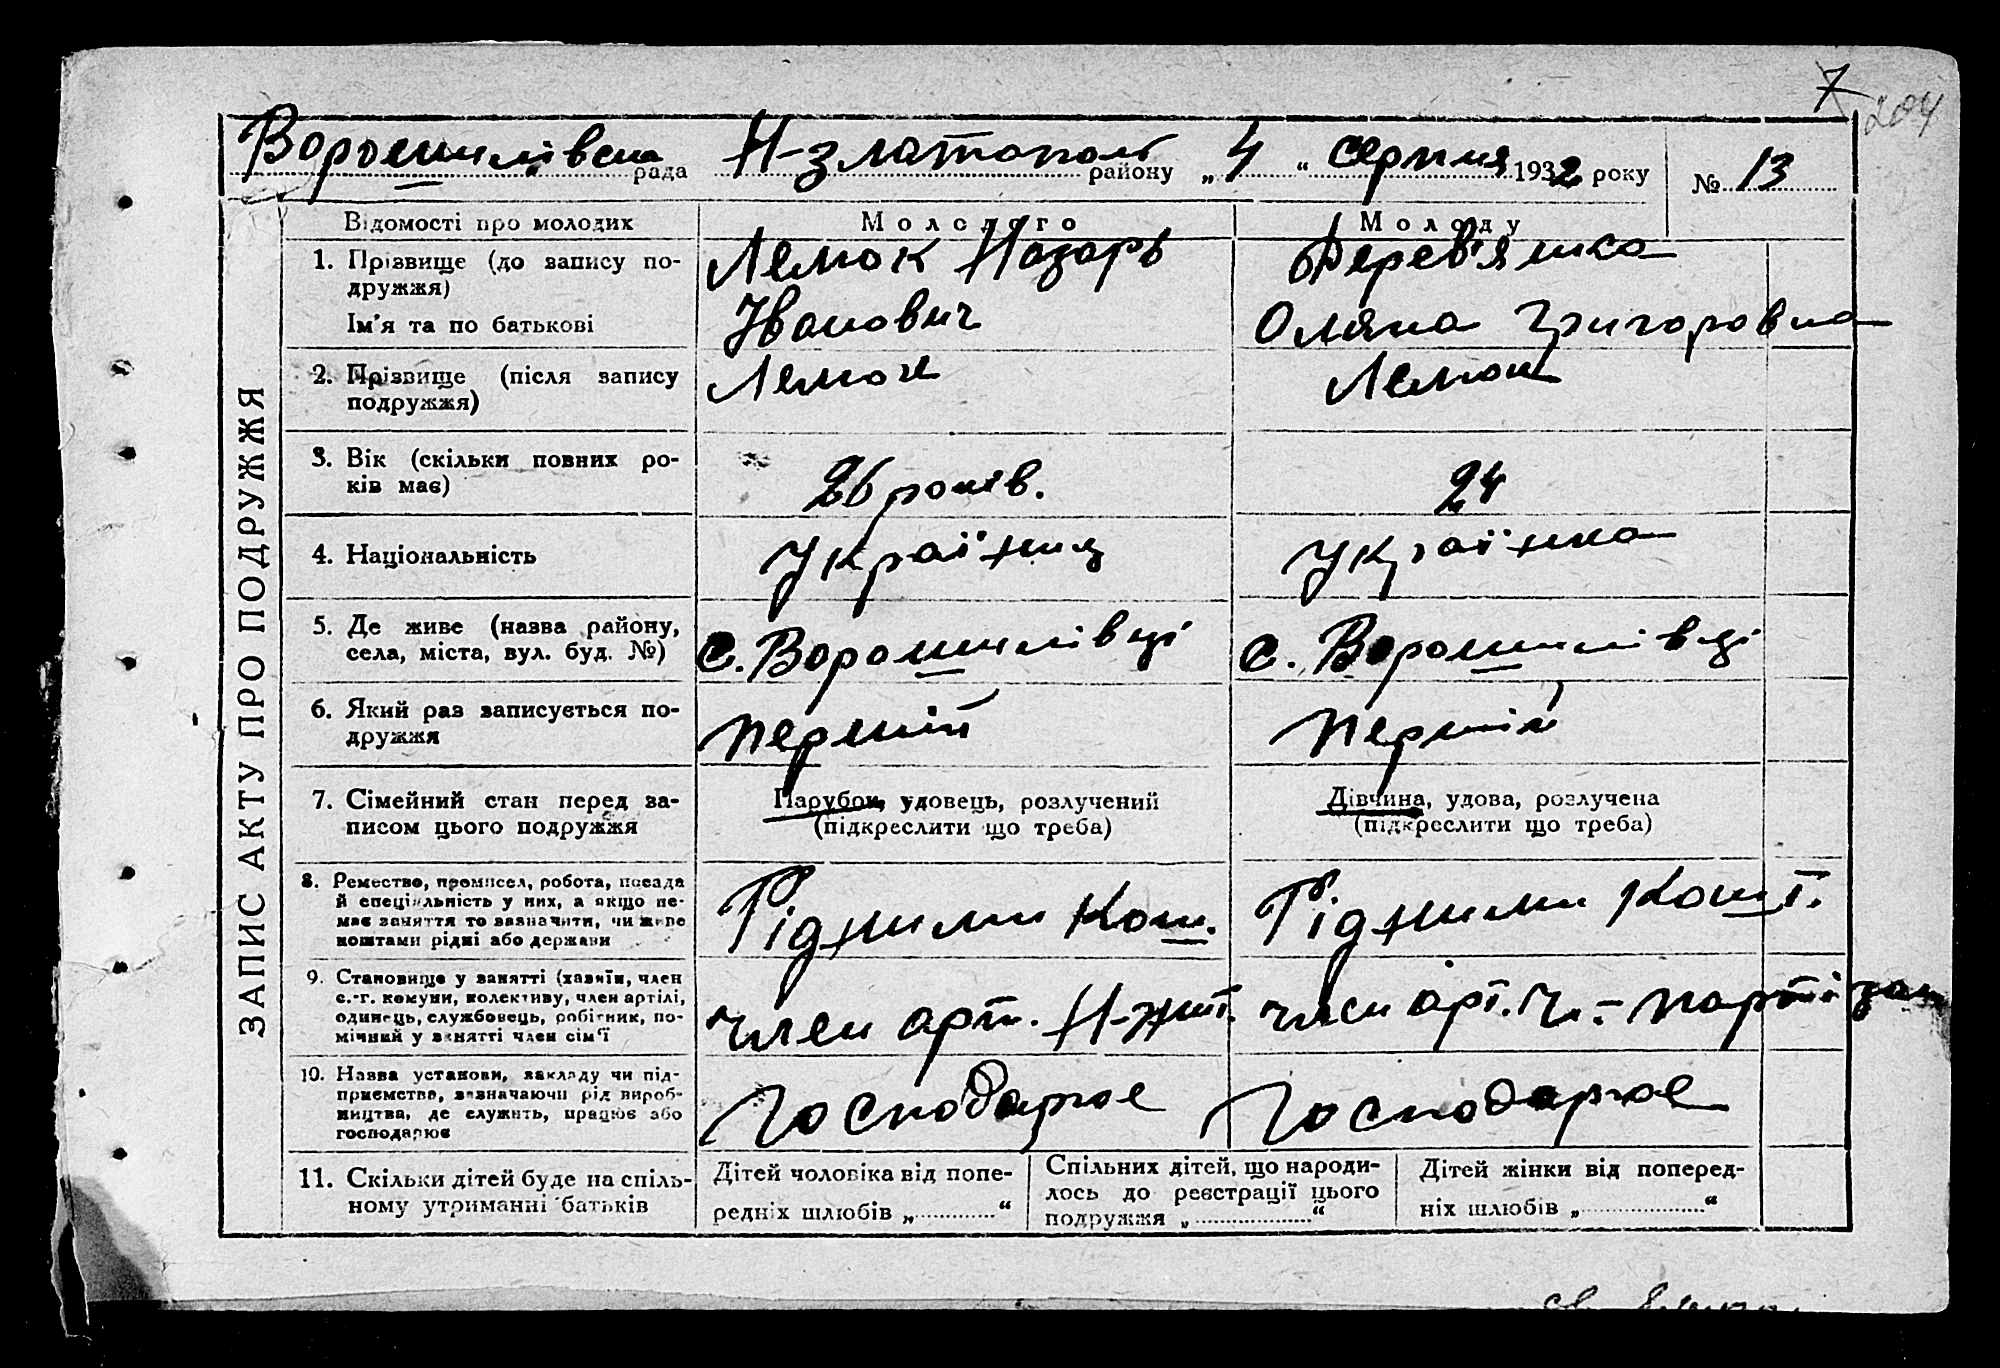 7
204
Ворошилівська рада Н-златополь району „4“ серпня 1932 року № 13
ЗАПИС АКТУ ПРО ПОДРУЖЖЯ
Відомості про молодих
Молодого
Молоду
1. Прізвище (до запису подружжя)
Ім'я та по батькові
Лемок Назарь
Іванович
Дерев'янка
Оляна Григоровна
2. Прізвище (після запису
подружжя)
Лемок
Лемок
3. Вік (скільки повних ро-
ків має)
26 років.
24
4. Національність
Українец
Українка
5. Де живе (назва району,
села, міста, вул. буд. №)
с. Ворошилівці
с. Ворошилівці
6. Який раз записується по-
дружжя
перший
перший
7. Сімейний стан перед за-
писом цього подружжя
Парубок, удовець, розлучений
(підкреслити що треба)
Дівчина, удова, розлучена
(підкреслити що треба)
8. Ремество, промисел, робота, посада
й спеціяльність у них, а якщо не-
має заняття то зазначити, чи живе
коштами рідні або держави
Рідними кош.
Рідними кошт.
9. Становище у занятті (хазяїн, член
с.-г. комуни, колективу, член артілі,
одинець, службовець, робітник, по-
мічний у занятті член сім'ї
член арт. Н-жит.
член арт. Ч.-партізан
10. Назва установи, закладу чи під-
приємства, зазначаючи рід вироб-
ництва, де служить, працює або
господарює
Господарює
Господарює
11. Скільки дітей буде на спіль-
ному утриманні батьків
Дітей чоловіка від попе-
редніх шлюбів „.............“
Спільних дітей, що народи-
лось до реєстрації цього
подружжя „...................“
Дітей жінки від поперед-
ніх шлюбів „....................“